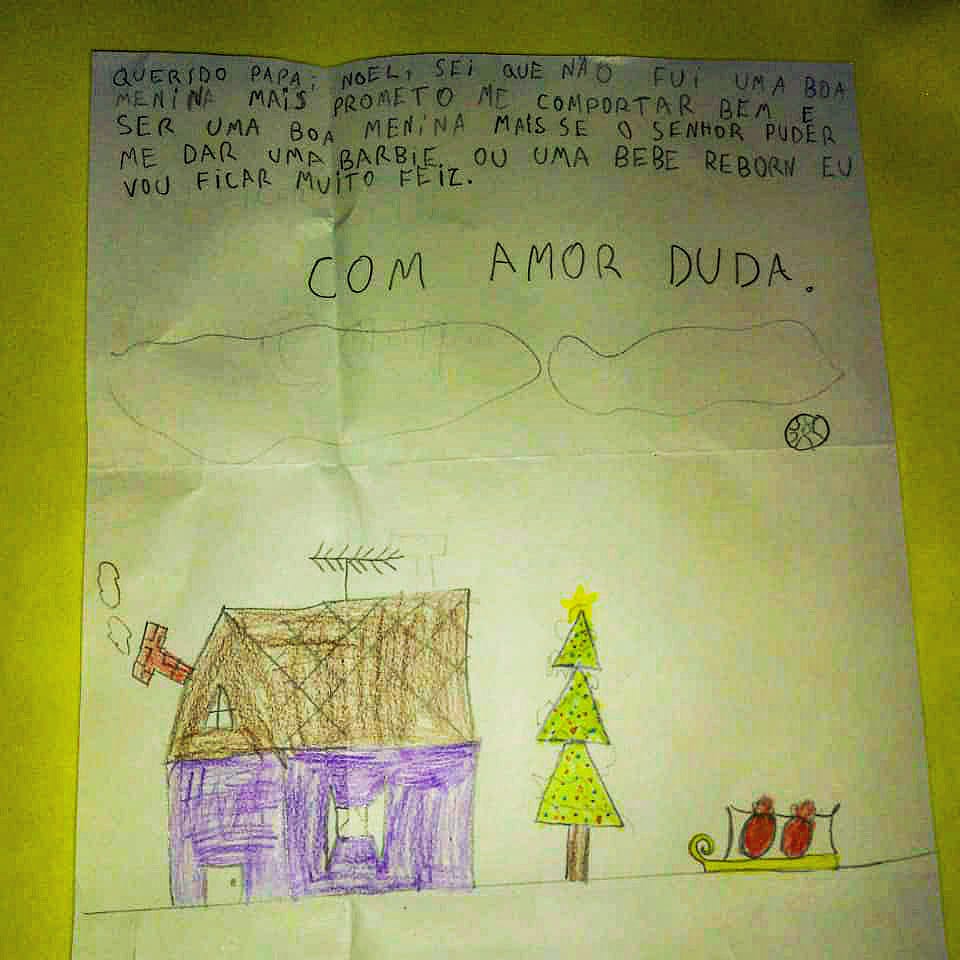 QUERIDO PAPAI NOEL, SEI QUE NÃO FUI UMA BOA
MENINA MAIS PROMETO ME COMPORTAR BEM E
SER UMA BOA MENINA MAIS SE O SENHOR PUDER
ME DAR UMA BARBIE. OU UMA BEBE REBORN EU
VOU FICAR MUITO FEIZ.
COM AMOR DUDA.